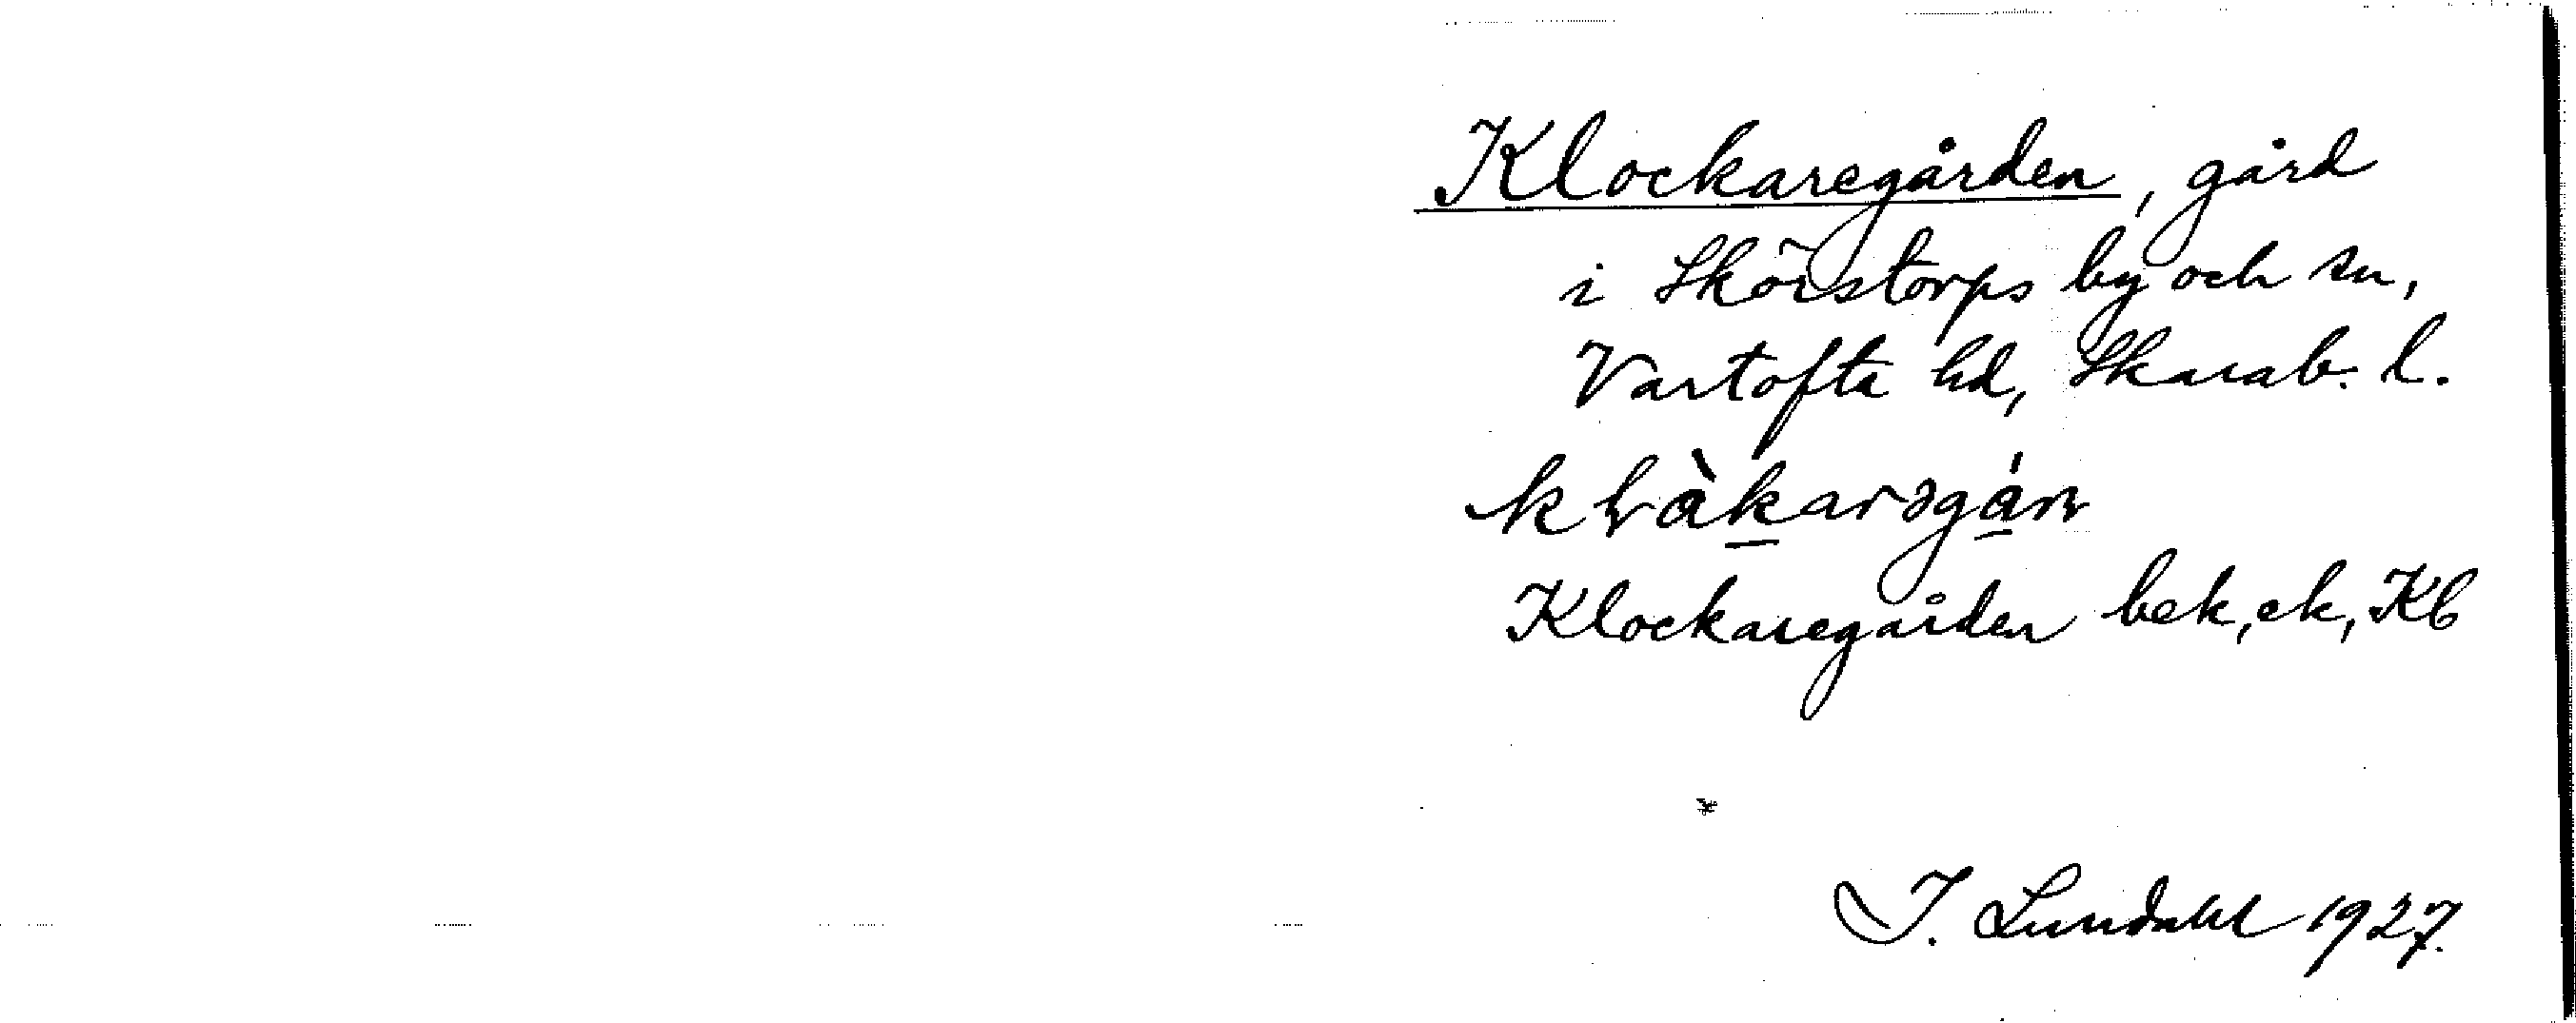 Klockaregården, gård
i Skörstorps by och sn,
Vartofta hd, Skarab. l.
Klockaregården bek, ek, Kb
I. Lundahl 1927.